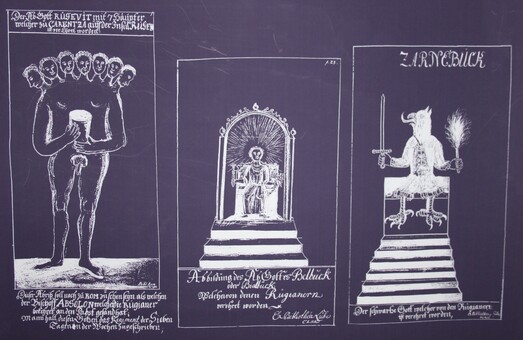 Der Ab-Gott RUSEVIT mit 7 Häupter
welcher zu CARENTZA auff der Insul RUGEN
ist vor Ehret worden
Dieser Abriß soll noch zu ROM zu sehen sein als welchen
der Bischoff ABSOLON welcher die Rugianer
bekehret an den Pabst gesandt hat
Mann hatt diesen Götzen das Regiment der Sieben
Tagen in der Wochen zugeschrieben
p. 22.
Abbildung des Ab Gottes Belbuck
oder Bealbuck
Welche von denen Rügianern
verehret worden.
ZARNEBUCK
Der schwarße Gott welcher von den Rugianern
ist verehret worden,